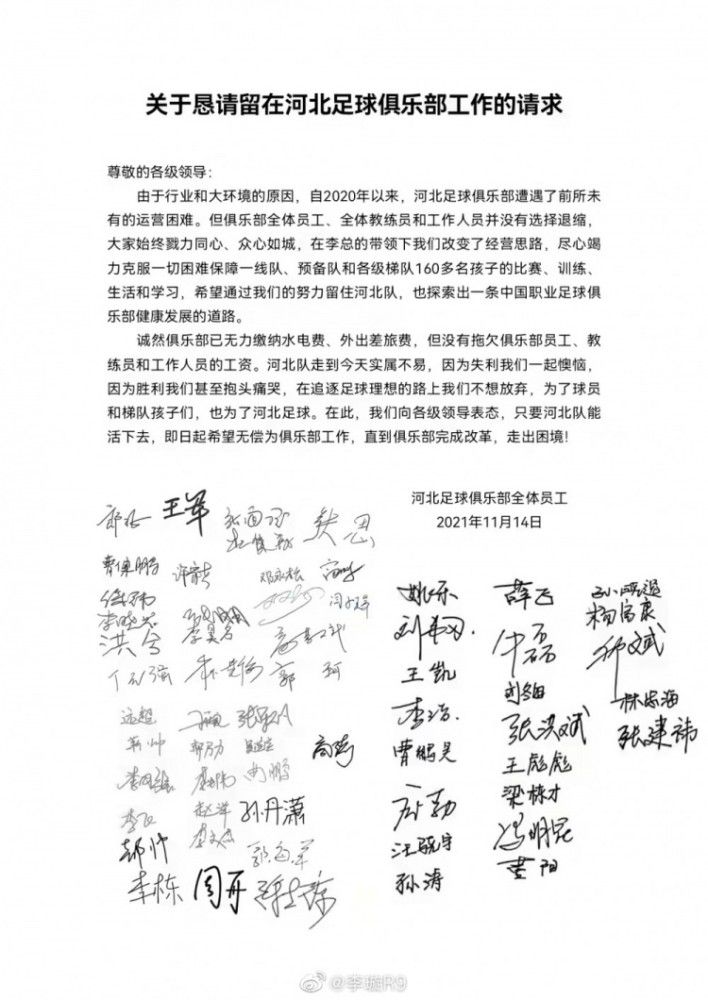 关于恳请留在河北足球俱乐部工作的请求
尊敬的各级领导：
由于行业和大环境的原因，自2020年以来，河北足球俱乐部遭遇了前所未
有的运营困难。但俱乐部全体员工、全体教练员和工作人员并没有选择退缩，
大家始终戮力同心、众心如城，在李总的带领下我们改变了经营思路，尽心竭
力克服一切困难保障一线队、预备队和各级梯队160多名孩子的比赛、训练、
生活和学习，希望通过我们的努力留住河北队，也探索出一条中国职业足球俱
乐部健康发展的道路。
诚然俱乐部已无力缴纳水电费、外出差旅费，但没有拖欠俱乐部员工、教
练员和工作人员的工资。河北队走到今天实属不易，因为失利我们一起懊恼，
因为胜利我们甚至抱头痛哭，在追逐足球理想的路上我们不想放弃，为了球员
和梯队孩子们，也为了河北足球。在此，我们向各级领导表态，只要河北队能
活下去，即日起希望无偿为俱乐部工作，直到俱乐部完成改革，走出困境！
河北足球俱乐部全体员工
2021年11月14日
王军
洪兮
郭珂
孙丹潇
李栋 周丹
姚乐 薛飞
杨富康
王凯 牛磊
林忠海
李浩 张洪斌 张建祎
曹鹏昊 王彪彪
梁栋才
汪晓宇 冯明昆
孙涛
@李璇R9